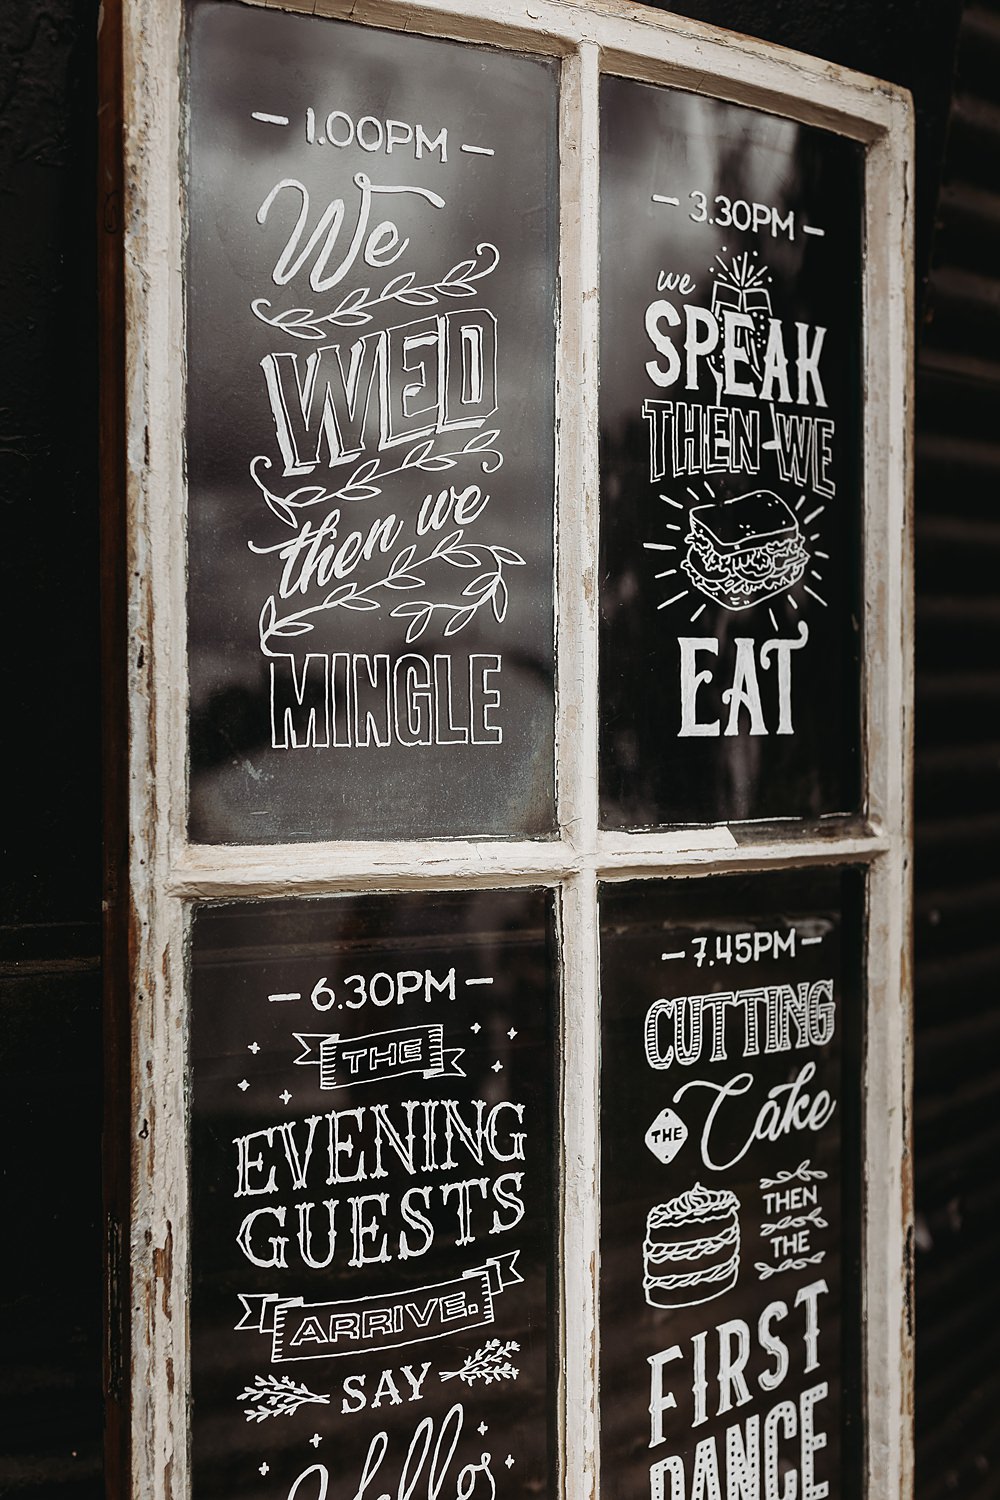 – 1.00PM –
We
WED
then we
MINGLE
– 3.30PM –
we
SPEAK
THEN WE
EAT
– 6.30PM –
THE
EVENING
GUESTS
ARRIVE.
SAY
Hello
– 7.45PM –
CUTTING
THE Cake
THEN
THE
FIRST
DANCE